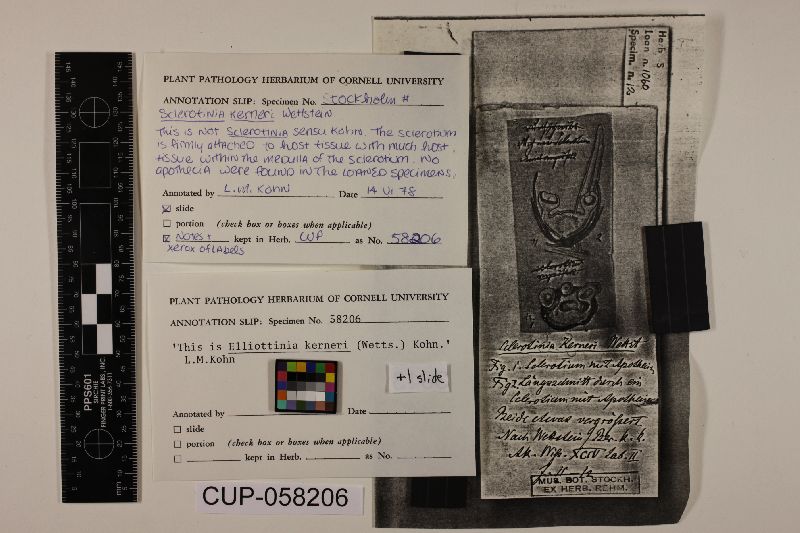 PLANT PATHOLOGY HERBARIUM OF CORNELL UNIVERSITY
ANNOTATION SLIP: Specimen No. Stockholm #
Sclerotinia kerneri Wettstein
This is not Sclerotinia sensu Kohn. The sclerotium
is firmly attached to host tissue with much host
tissue within the medulla of the sclerotium. No
apothecia were found in the loaned specimens.
Annotated by L.M. Kohn Date 14 VI 78
slide
portion (check box or boxes when applicable)
Notes + kept in Herb. CUP as No. 58206
xerox of labels
PLANT PATHOLOGY HERBARIUM OF CORNELL UNIVERSITY
ANNOTATION SLIP: Specimen No. 58206
'This is Elliottinia kerneri (Wetts.) Kohn.'
L.M.Kohn
+1 slide
Annotated by Date
slide
portion (check box or boxes when applicable)
kept in Herb. as No.
CUP-058206
PPS601
SIRCHIE
FINGER PRINT LABS, INC.
Herb. S
Loan n. 1060
Specim. n.
Sclerotinia Kerneri Wettst.
Fig. 1. Sclerotium mit Apothecien
Fig 2 Längsschnitt durch ein
Sclerotium mit Apothecium
Beide etwas vergrößert
Nach Wettstein
Ak. Wiss. XCIV Tab. II
MUS. BOT. STOCKH.
EX HERB. REHM.